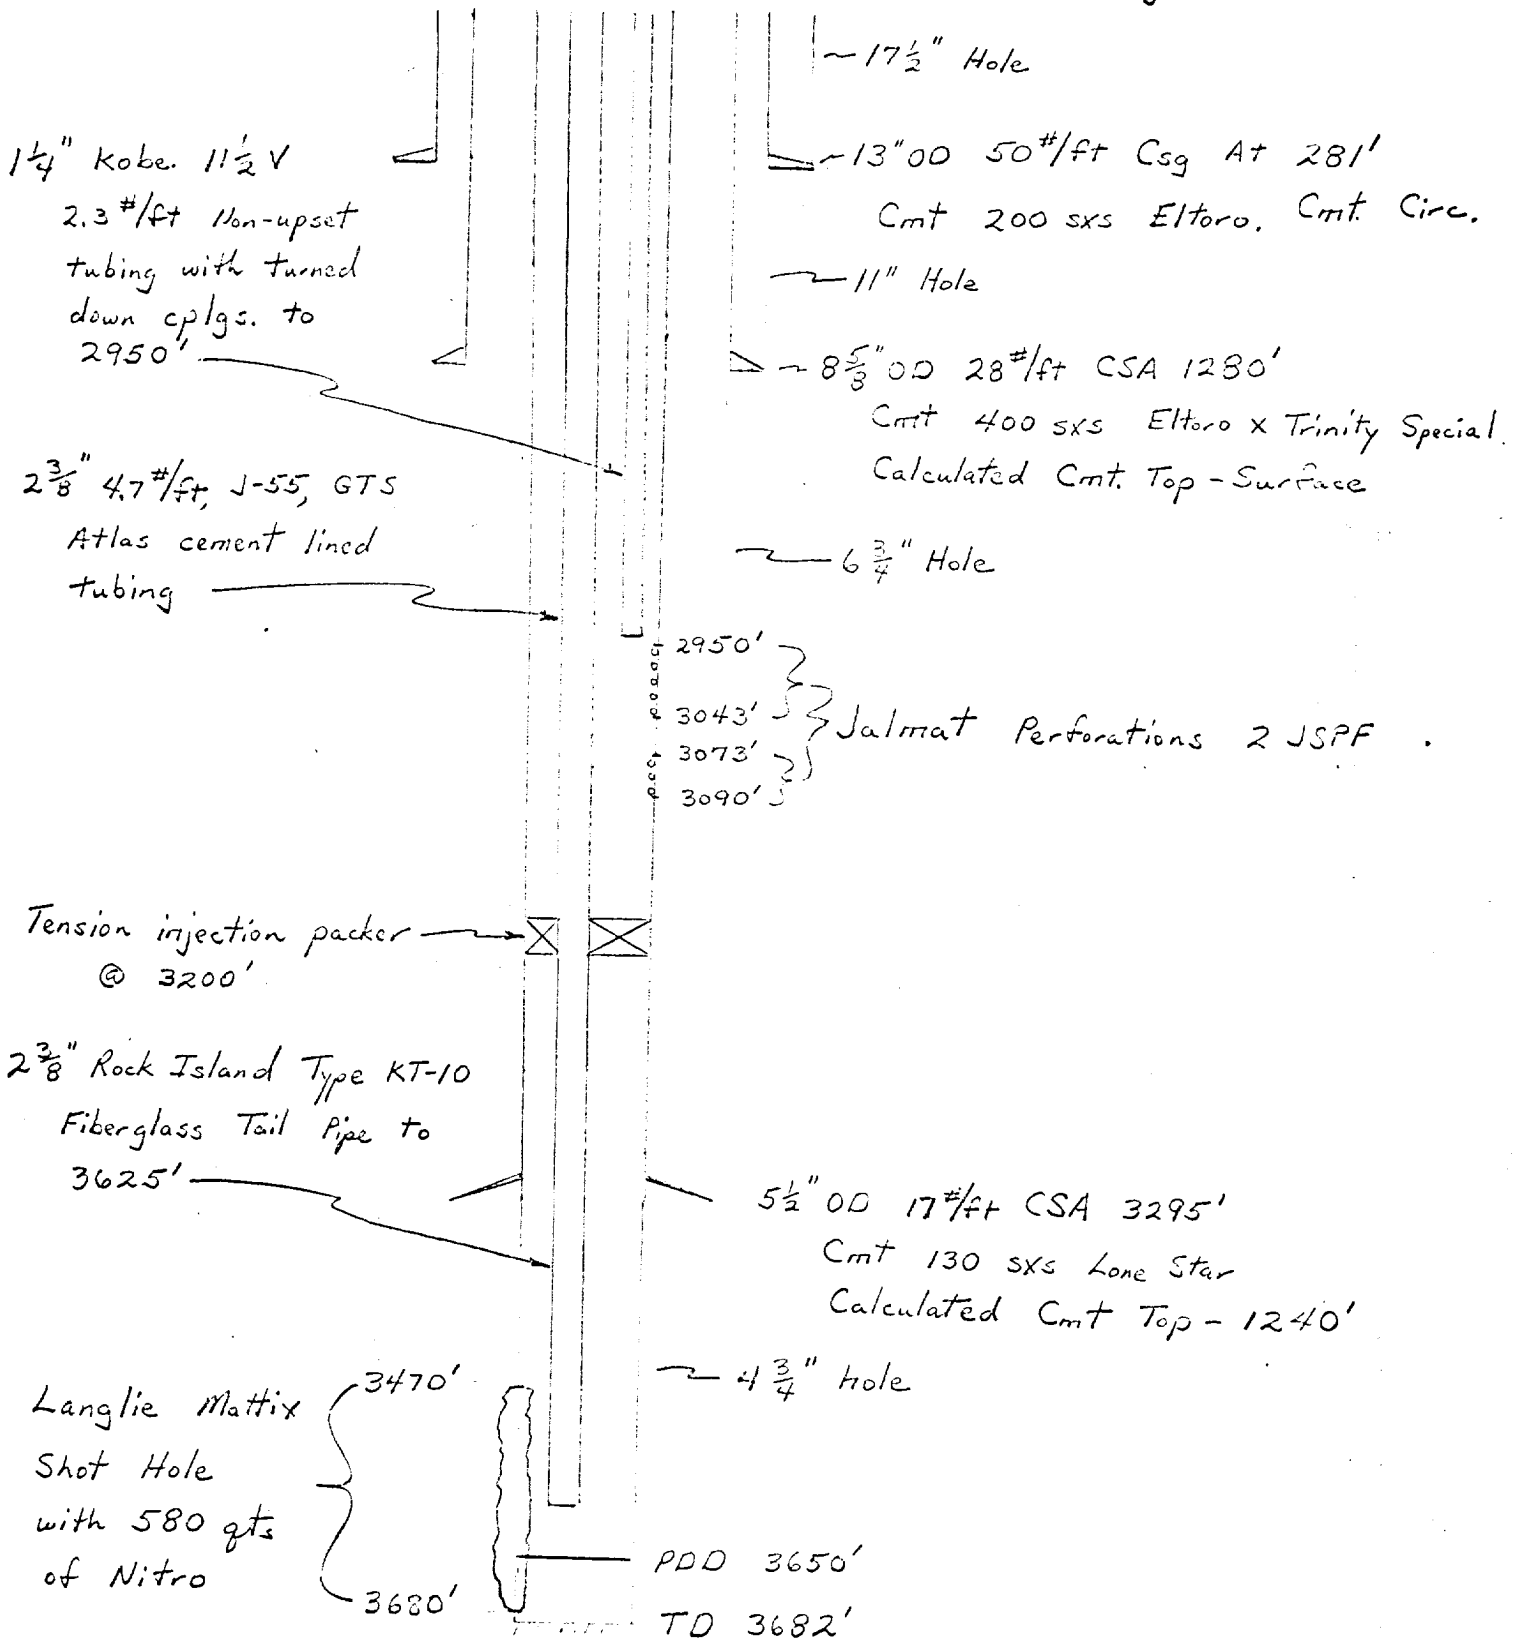 ~17 1/2" Hole
1 1/4" Kobe. 11 1/2 V
2.3 #/ft Non-upset
tubing with turned
down cplgs. to
2950'
~13" OD 50 #/ft Csg At 281'
Cmt 200 sxs Eltoro. Cmt. Circ.
11" Hole
~8 5/8" OD 28 #/ft CSA 1280'
Cmt 400 sxs Eltoro x Trinity Special.
Calculated Cmt. Top - Surface
2 3/8" 4.7 #/ft, J-55, GTS
Atlas cement lined
tubing
6 3/4" Hole
2950'
3043'
3073'
3090'
Jalmat Perforations 2 JSPF.
Tension injection packer
@ 3200'
2 3/8" Rock Island Type KT-10
Fiberglass Tail Pipe to
3625'
5 1/2" OD 17 #/ft CSA 3295'
Cmt 130 sxs Lone Star
Calculated Cmt Top - 1240'
4 3/4" hole
Langlie Mattix
Shot Hole
with 580 qts
of Nitro
3470'
3680'
PDD 3650'
TD 3682'